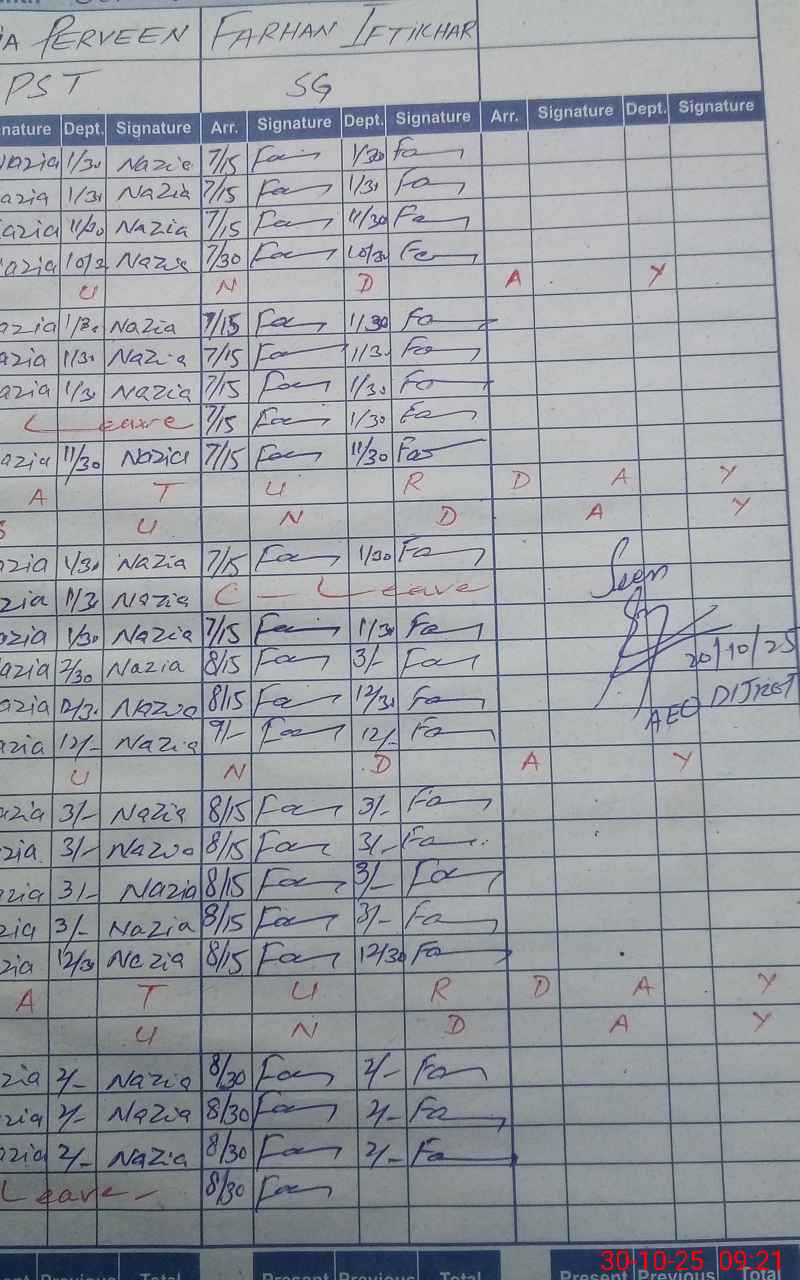 PERVEEN FARHAN IFTIKHAR
PST SG
nature Dept. Signature Arr. Signature Dept. Signature Arr. Signature Dept. Signature
Nazia 1/30 Nazia 7/15 Fa 1/30 Fa
azia 1/30 Nazia 7/15 Fa 1/30 Fa
azia 11/30 Nazia 7/15 Fa 11/30 Fa
azia 10/30 Nazia 7/30 Fa 10/30 Fa
U N D A Y
azia 1/30 Nazia 7/15 Fa 1/30 Fa
azia 1/30 Nazia 7/15 Fa 1/30 Fa
azia 1/30 Nazia 7/15 Fa 1/30 Fa
Leave 7/15 Fa 1/30 Fa
azia 11/30 Nazia 7/15 Fa 11/30 Fa
A T U R D A Y
S U N D A Y
azia 1/30 Nazia 7/15 Fa 1/30 Fa
zia 1/30 Nazia C - Leave
Seen
azia 1/30 Nazia 7/15 Fa 1/30 Fa
azia 2/30 Nazia 8/15 Fa 3/- Fa 20/10/25
azia 12/30 Nazia 8/15 Fa 12/30 Fa AEO
azia 12/- Nazia 9/- Fa 12/- Fa
U N D A Y
azia 3/- Nazia 8/15 Fa 3/- Fa
zia 3/- Nazia 8/15 Fa 3/- Fa
azia 3/- Nazia 8/15 Fa 3/- Fa
zia 3/- Nazia 8/15 Fa 3/- Fa
zia 12/30 Nazia 8/15 Fa 12/30 Fa
A T U R D A Y
U N D A Y
zia 2/- Nazia 8/30 Fa 2/- Fa
zia 2/- Nazia 8/30 Fa 2/- Fa
azia 2/- Nazia 8/30 Fa 2/- Fa
Leave - 8/30 Fa
Previous Total Present Previous Total Present Previous Total
30-10-25 09:21